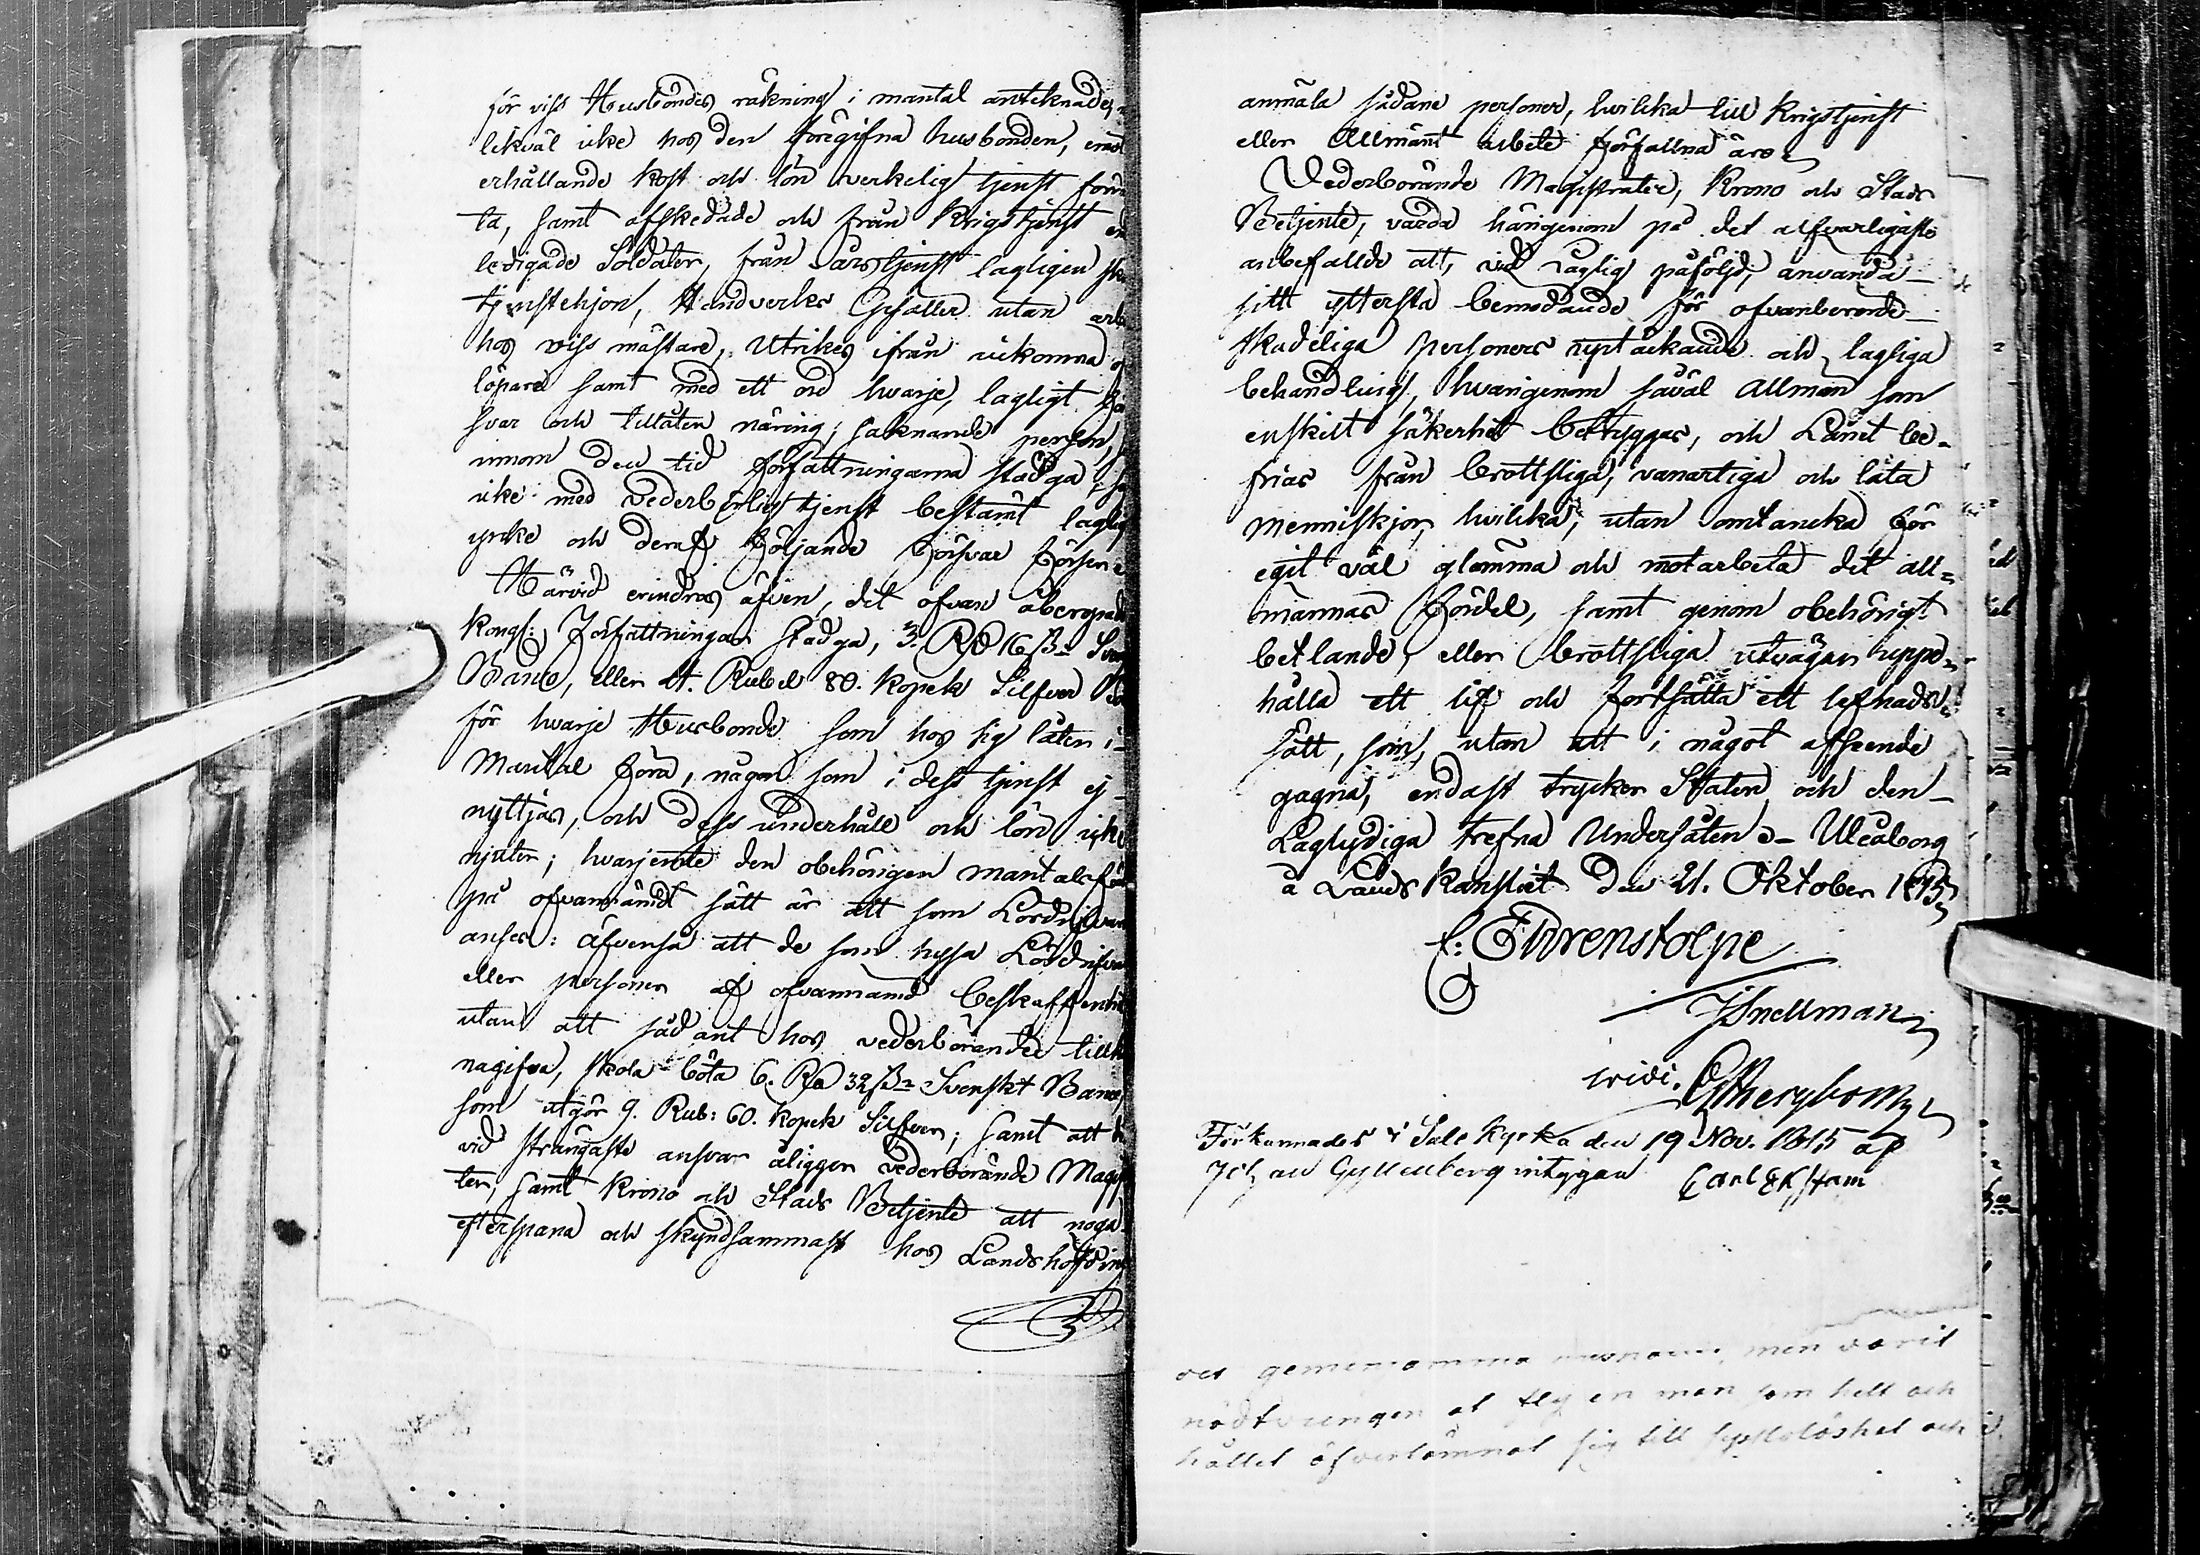 för viss Husbondes räkning i mantal anteknade,
likväl icke hos den föregifna husbonden, emot
erhållande kost och lön verkelig tjenst förrä
ta, samt afskedade och från Krigstjenst en
ledigade Soldater, från årstjenst lagligen ski
tjenstehjon, Handverks Gesäller utan arbe
hos viss mästare, Utrikes ifrån inkomna
löpare samt med ett ord hvarje, lagligt för
svar och tillåten näring, saknande person,
innom den tid författningarna stadga,
icke med vederbörlig tjenst bestämt laglig
yrke och deraf följande försvar försen
Härvid erindras äfven, det ofvan åberopade
Kongl: Författningar stadga, 3. Rd 16 ß Svenskt
Banco, eller 4. Rubel 80. kopek Silfver
för hvarje Husbonde som hos sig låter i
Mantal föra, någon som i dess tjenst ej
nyttjas, och dess underhåll och lön icke
njuter; hvarjemte den obehörigen mantalsförde
på ofvannämdt sätt är att som Lösdrifvare
anses: äfvenså att de som hysa Lösdrifvare
eller personer af ofvannämd beskaffenhet
utan att sådant hos vederbörande tillkän
nagifva, skola böta 6. Rd 32 ß Svenskt Banco,
som utgör 9. Rub: 60. kopek Silfver; samt att
vid strängaste ansvar åligger vederbörande Magistra
ter, samt Krono och Stads Betjente att noga
efterspana och skyndsammast hos Landshöfding
anmäla sådane personer, hvilka till Krigstjenst
eller Allmänt arbete förfallna äro.
Vederbörande Magistrater, Krono och Stads
Betjente, varda härigenom på det alfvarligaste
anbefallde att, vid laglig påföljd, använda
sitt yttersta bemödande för ofvanberörde
skadeliga personers uptäckande och lagliga
behandling, hvarigenom såväl Allmän som
enskilt säkerhet betryggas, och Länet be-
frias från brottsliga, vanartiga och lata
menniskjor, hvilka, utan omtancka för
egit väl glömma och motarbeta det all=
männas fördel, samt genom obehörigt
betlande, eller brottsliga utvägar uppe=
hålla ett lif och fortsätta ett lefnads=
sätt, som, utan att i något afseende
gagna, endast trycker Staten och den
Laglydiga trefna Undersåten. Uleåborg
å Lands Kansliet den 21. Oktober 1815.
C: Ehrenstolpe
J Snellman
vidi.
Förkunnades i Salo Kyrka den 19 Nov. 1815 af
Johan Gyllenberg intygar Carl Ekstam
gemensamma men varit
nödtvungen at fly en man som helt och
hållet öfverlämnat sig till och